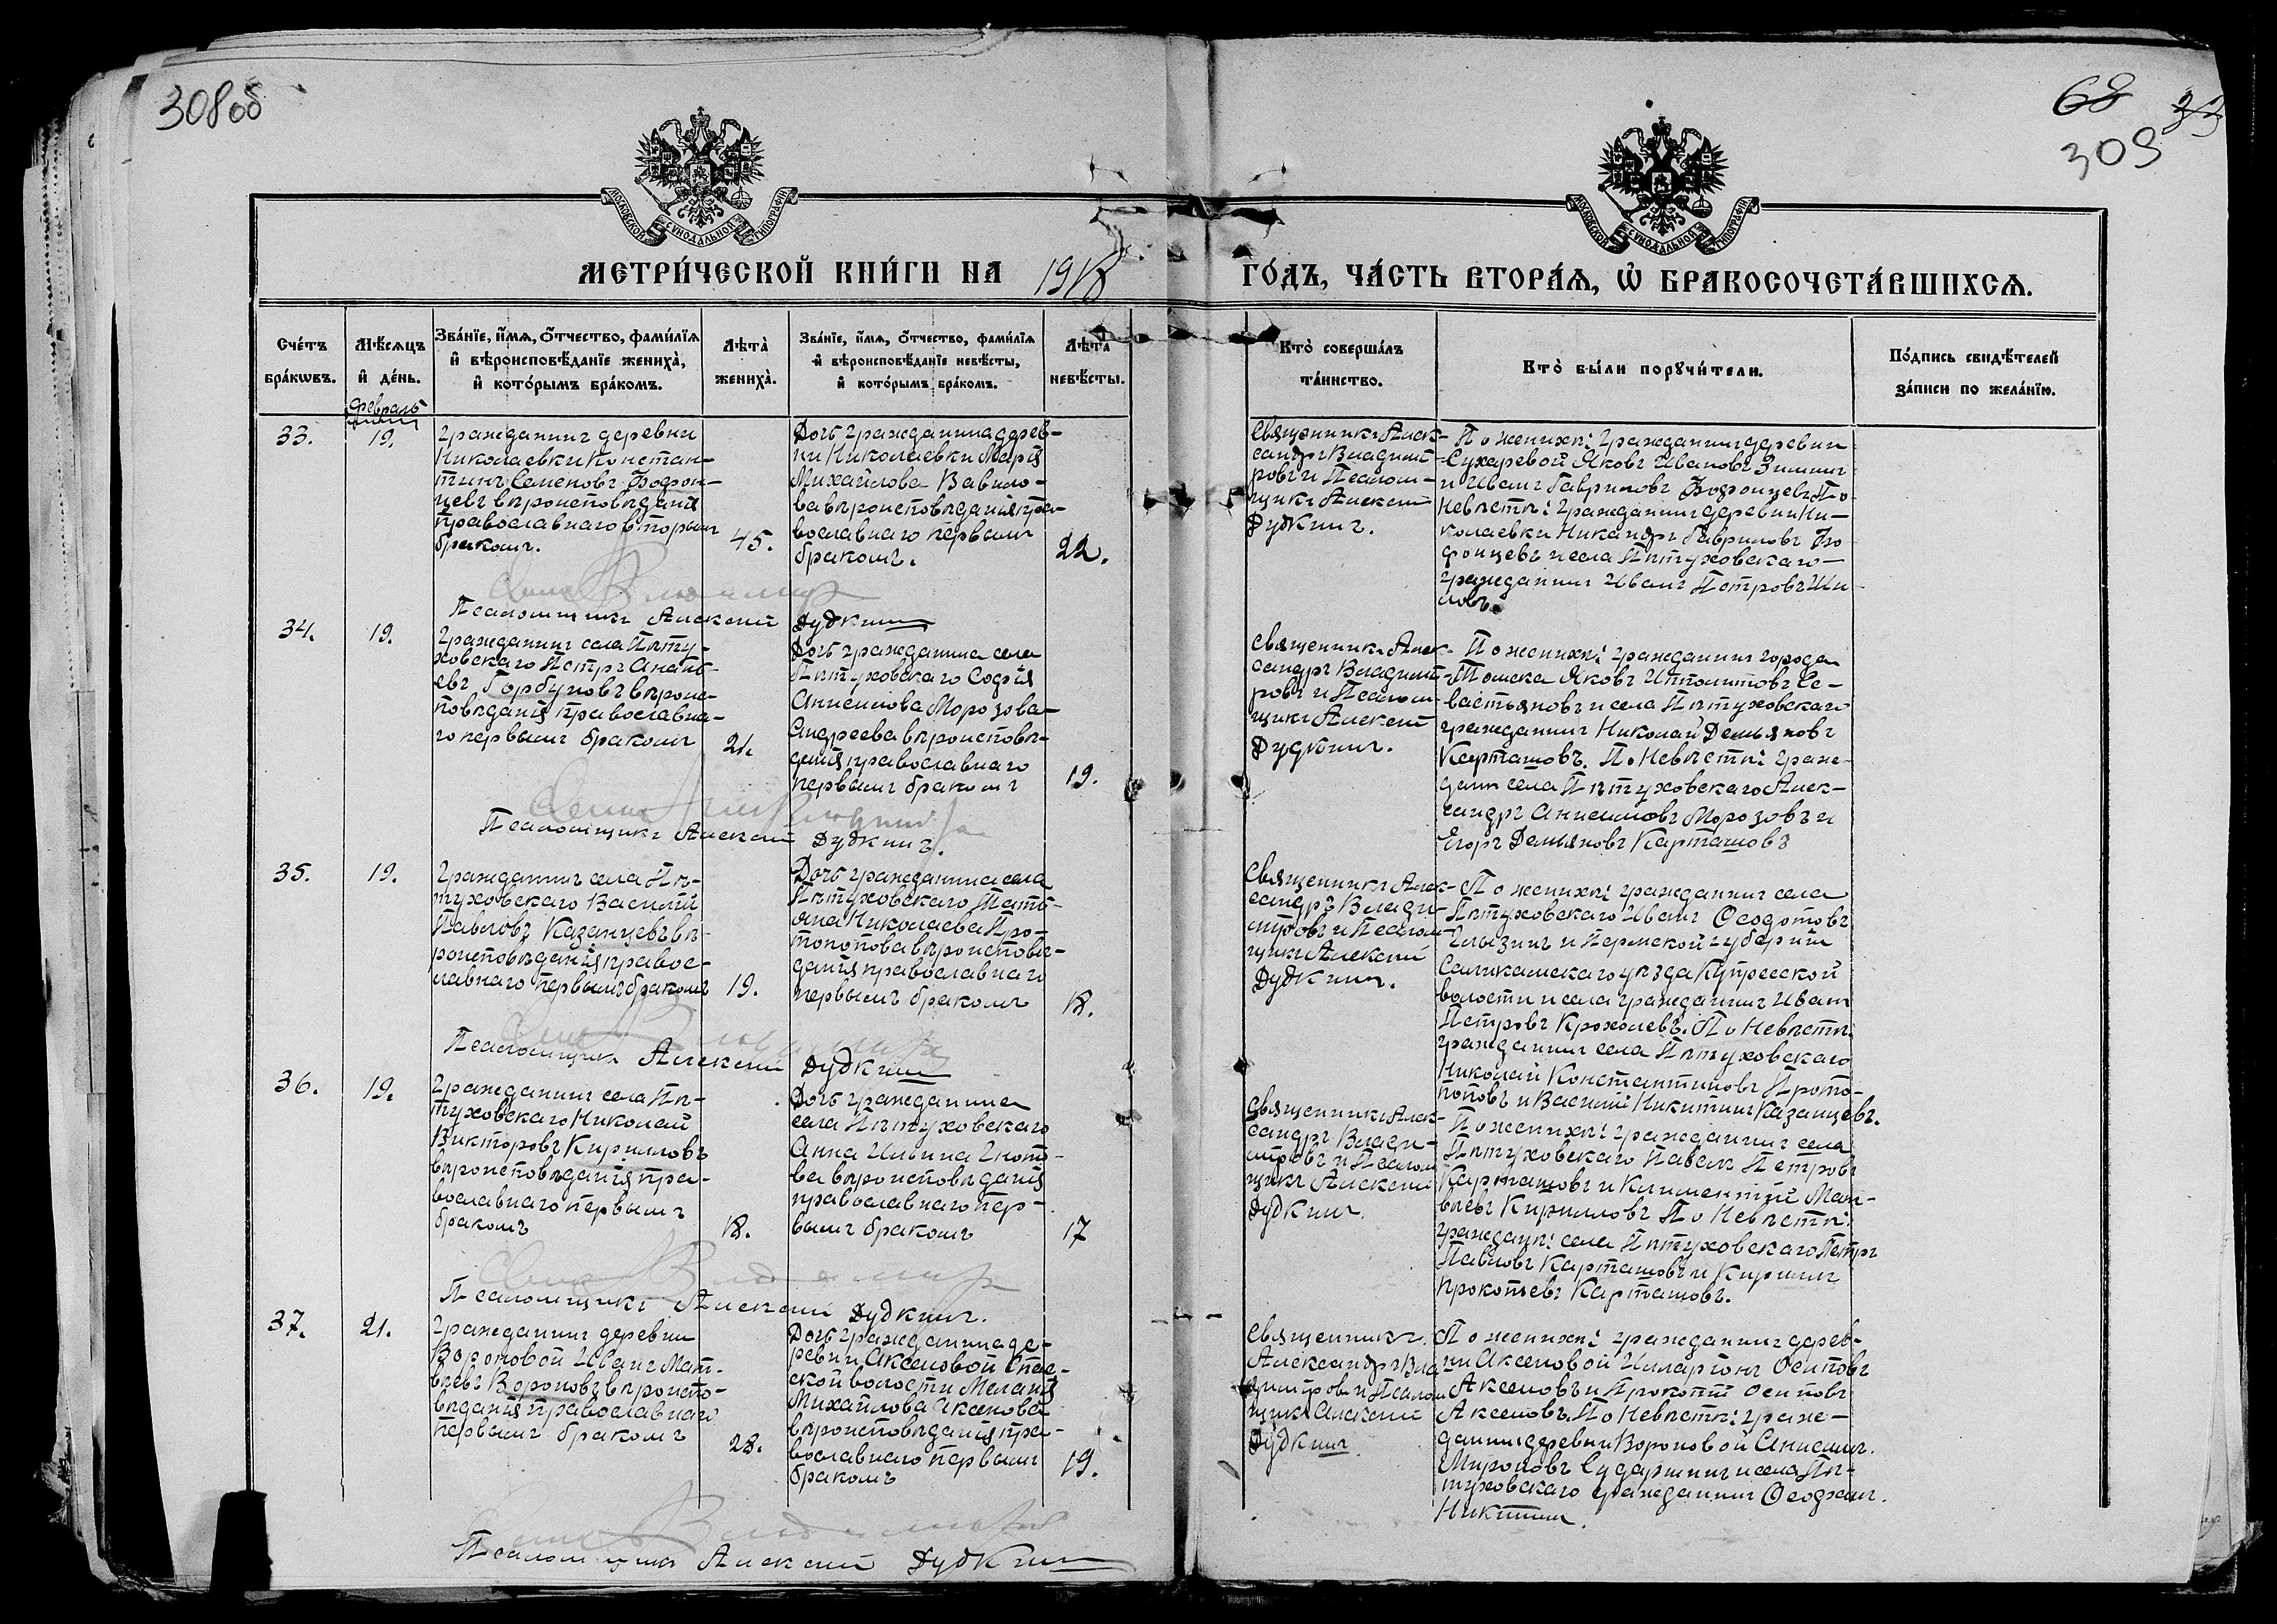 308 об
68
309
МОСКОВСКОЙ СѴНОДАЛЬНОЙ ТИПОГРАФІИ
МОСКОВСКОЙ СѴНОДАЛЬНОЙ ТИПОГРАФІИ
МЕТРИ́ЧЕСКОЙ КНИ́ГИ НА 1918
ГО́ДЪ, ЧА́СТЬ ВТОРА́Ѧ, Ѡ҆ БРАКОСОЧЕТА́ВШИХСѦ.
Сче́тъ бра́кѡвъ.
Мѣ́сѧцъ и҆ де́нь.
Зва́нїе, и҆́мѧ, ѻ҆́тчество, фами́лїѧ и҆ вѣроисповѣ́данїе жениха̀, и҆ кото́рымъ бра́комъ.
Лѣта̀ жениха̀.
Зва́нїе, и҆́мѧ, ѻ҆́тчество, фами́лїѧ и҆ вѣроисповѣ́данїе невѣ́сты, и҆ кото́рымъ бра́комъ.
Лѣта̀ невѣ́сты.
Кто̀ соверша́лъ та́инство.
Кто̀ бы́ли порꙋчи́тели.
По́дпись свидѣ́телей за́писи по жела́нїю.
Февраль
33.
19.
Гражданинъ деревни
Николаевки Констан-
тинъ Семеновъ Бофон-
цевъ вѣроисповѣданія
православнаго вторымъ
бракомъ.
45.
Дочь гражданина дерев-
ни Николаевки Марія
Михайлова Вавило-
ва вѣроисповѣданія пра-
вославнаго первымъ
бракомъ.
22.
Священникъ Алек-
сандръ Владими-
ровъ и Псалом-
щикъ Алексей
Дудкинъ.
По женихѣ: гражданинъ деревни
Сухаревой Яковъ Ивановъ Зиминъ
и Иванъ Гавриловъ Бофонцевъ По
Невѣстѣ: гражданинъ деревни Ни-
колаевки Никандръ Гавриловъ Бо
фонцевъ и села Пѣтуховскаго
гражданинъ Иванъ Петровъ Ши
ловъ.
Псаломщикъ Алексей Дудкинъ
34.
19.
Гражданинъ села Пѣту-
ховскаго Петръ Анань-
евъ Горбуновъ вѣроис-
повѣданія православна-
го первымъ бракомъ
21.
Дочь гражданина села
Пѣтуховскаго Софія
Анисимова Морозова
Андреева вѣроисповѣ-
данія православнаго
первымъ бракомъ
19.
Священникъ Алек-
сандръ Владими-
ровъ и Псалом-
щикъ Алексей
Дудкинъ.
По женихѣ: гражданинъ города
Томска Яковъ Ипполитовъ Се-
вастьяновъ и села Пѣтуховскаго
гражданинъ Николай Демьяновъ
Карташовъ. По Невѣстѣ: граж-
данѣ села Пѣтуховскаго Алек-
сандръ Анисимовъ Морозовъ и
Егоръ Демьяновъ Карташовъ
Псаломщикъ Алексей Дудкинъ.
35.
19.
Гражданинъ села Пѣ-
туховскаго Василій
Павловъ Казанцевъ вѣ-
роисповѣданія правос-
лавнаго первымъ бракомъ
19.
Дочь гражданина села
Пѣтуховскаго Тать-
яна Николаева Про-
топопова вѣроисповѣ-
данія православнаго
первымъ бракомъ
18.
Священникъ Алек-
сандръ Влади-
мировъ и Псалом-
щикъ Алексей
Дудкинъ.
По женихѣ: гражданинъ села
Пѣтуховскаго Иванъ Ѳеодотовъ
и Пермской губерніи
Саликамскаго уѣзда Купросской
волости и села гражданинъ Иванъ
Петровъ Крохалевъ. По Невѣстѣ:
гражданинъ села Пѣтуховскаго
Николай Константиновъ Прото-
поповъ и Василій Никитинъ Казанцевъ.
Псаломщикъ Алексей Дудкинъ
36.
19.
Гражданинъ села Пѣ-
туховскаго Николай
Викторовъ Кирилловъ
вѣроисповѣданія пра-
вославнаго первымъ
бракомъ
18.
Дочь гражданина
села Пѣтуховскаго
Анна Ильина
ва вѣроисповѣданія
православнаго пер-
вымъ бракомъ
17
Священникъ Алек-
сандръ Влади-
мировъ и Псалом
щикъ Алексей
Дудкинъ.
По женихѣ: гражданинъ села
Пѣтуховскаго Павелъ Петровъ
Карташовъ и Климентій Мат-
вѣевъ Кирилловъ По Невѣстѣ:
граждане: села Пѣтуховскаго Петръ
Павловъ Карташовъ и Кириллъ
Прокопьевъ Карташовъ.
Псаломщикъ Алексей Дудкинъ.
37.
21.
Гражданинъ деревни
Вороновой Иванъ Мат-
вѣевъ Вороновъ вѣроиспо-
вѣданія православнаго
первымъ бракомъ
28.
Дочь гражданина де-
ревни Аксеновой Спас-
ской волости Меланія
Михайлова Аксенова
вѣроисповѣданія пра-
вославнаго первымъ
бракомъ
19.
Священникъ
Александръ Вла
димировъ и Псалом
щикъ Алексей
Дудкинъ
По женихѣ: гражданинъ дерев-
ни Аксеновой Илларіонъ Осиповъ
Аксеновъ и Прокопій Осиповъ
Аксеновъ. По Невѣстѣ: граж-
данинъ деревни Вороновой Анисимъ
Мироновъ Сударкинъ и села Пѣ-
туховскаго гражданинъ
Никитинъ.
Псаломщикъ Алексей Дудкинъ